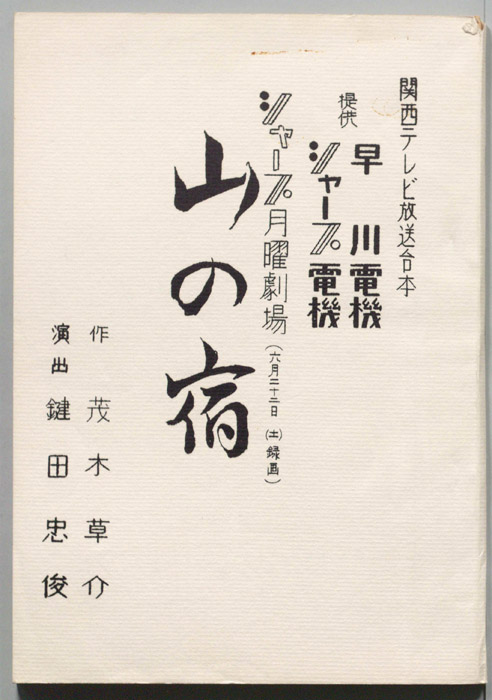 関西テレビ放送台本
提供
早川電機
シャープ電機
シャープ月曜劇場
(六月二十二日(土)録画)
山の宿
作 茂木草介
演出 鍵田忠俊